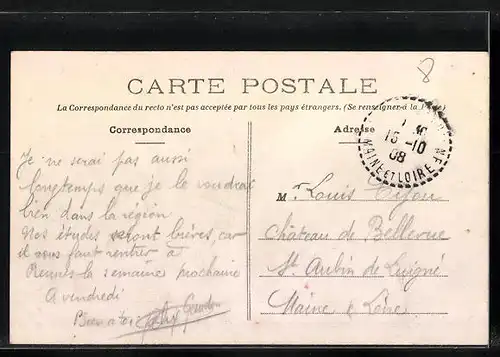 8
CARTE POSTALE
La Correspondance du recto n'est pas acceptée par tous les pays étrangers. (Se renseigner à la
Correspondance
Adresse
15-10
08
MAINE ET LOIRE
Je ne serai pas aussi
longtemps que je le voudrais
bien dans la région
Nos études seront brèves, car
il nous faut rentrer à
Rennes la semaine prochaine
A vendredi
Bien à toi
M. Louis
Château de Bellevue
St Aubin de Luigné
Maine & Loire